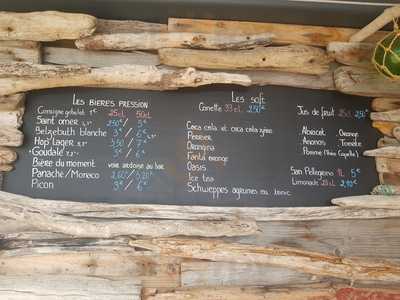 LES BIERES PRESSION
Consigne gobelet 1€ 25cl 50cl
Saint omer 2,50€ 5€
Belzebuth blanche 3€ 6€
Hop'Lager 3,50 7€
Goudale 3€ 6€
Bière du moment voir ardoise au bar
Panache/Monaco 2,60€ 5,20€
Picon 3€ 6€
Les soft
Canette 33cl 2,50€
Coca cola et coca cola zéro
Perrier
Orangina
Fanta orange
Oasis
Ice tea
Schweppes agrumes ou tonic
Jus de fruit 25cl 2,50€
Abricot Orange
Ananas Tomate
Pomme
San Pellegrino 1L 5€
Limonade 25cl 2,10€